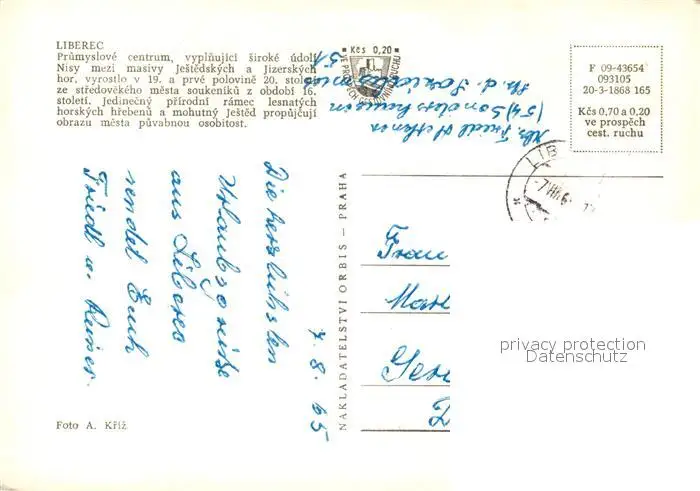 LIBEREC
Průmyslové centrum, vyplňující široké údolí
Nisy mezi masivy Ještědských a Jizerských
hor, vyrostlo v 19. a prvé polovině 20. století
ze středověkého města soukeníků z období 16.
století. Jedinečný přírodní rámec lesnatých
horských hřebenů a mohutný Ještěd propůjčují
obrazu města půvabnou osobitost.
Kčs 0,20
VE PROSPĚCH CESTOVNÍHO RUCHU
F 09-43654
093105
20-3-1868 165
Kčs 0,70 a 0,20
ve prospěch
cest. ruchu
Friedl
(54) Sondershausen
51
LIB
7.8.65
Die herzlichsten
Urlaubsgrüße
aus Liberec
sendet Euch
Friedl u. Reiner
NAKLADATELSTVÍ ORBIS – PRAHA
Frau
Mar
Ger
privacy protection
Datenschutz
Foto A. Kříž